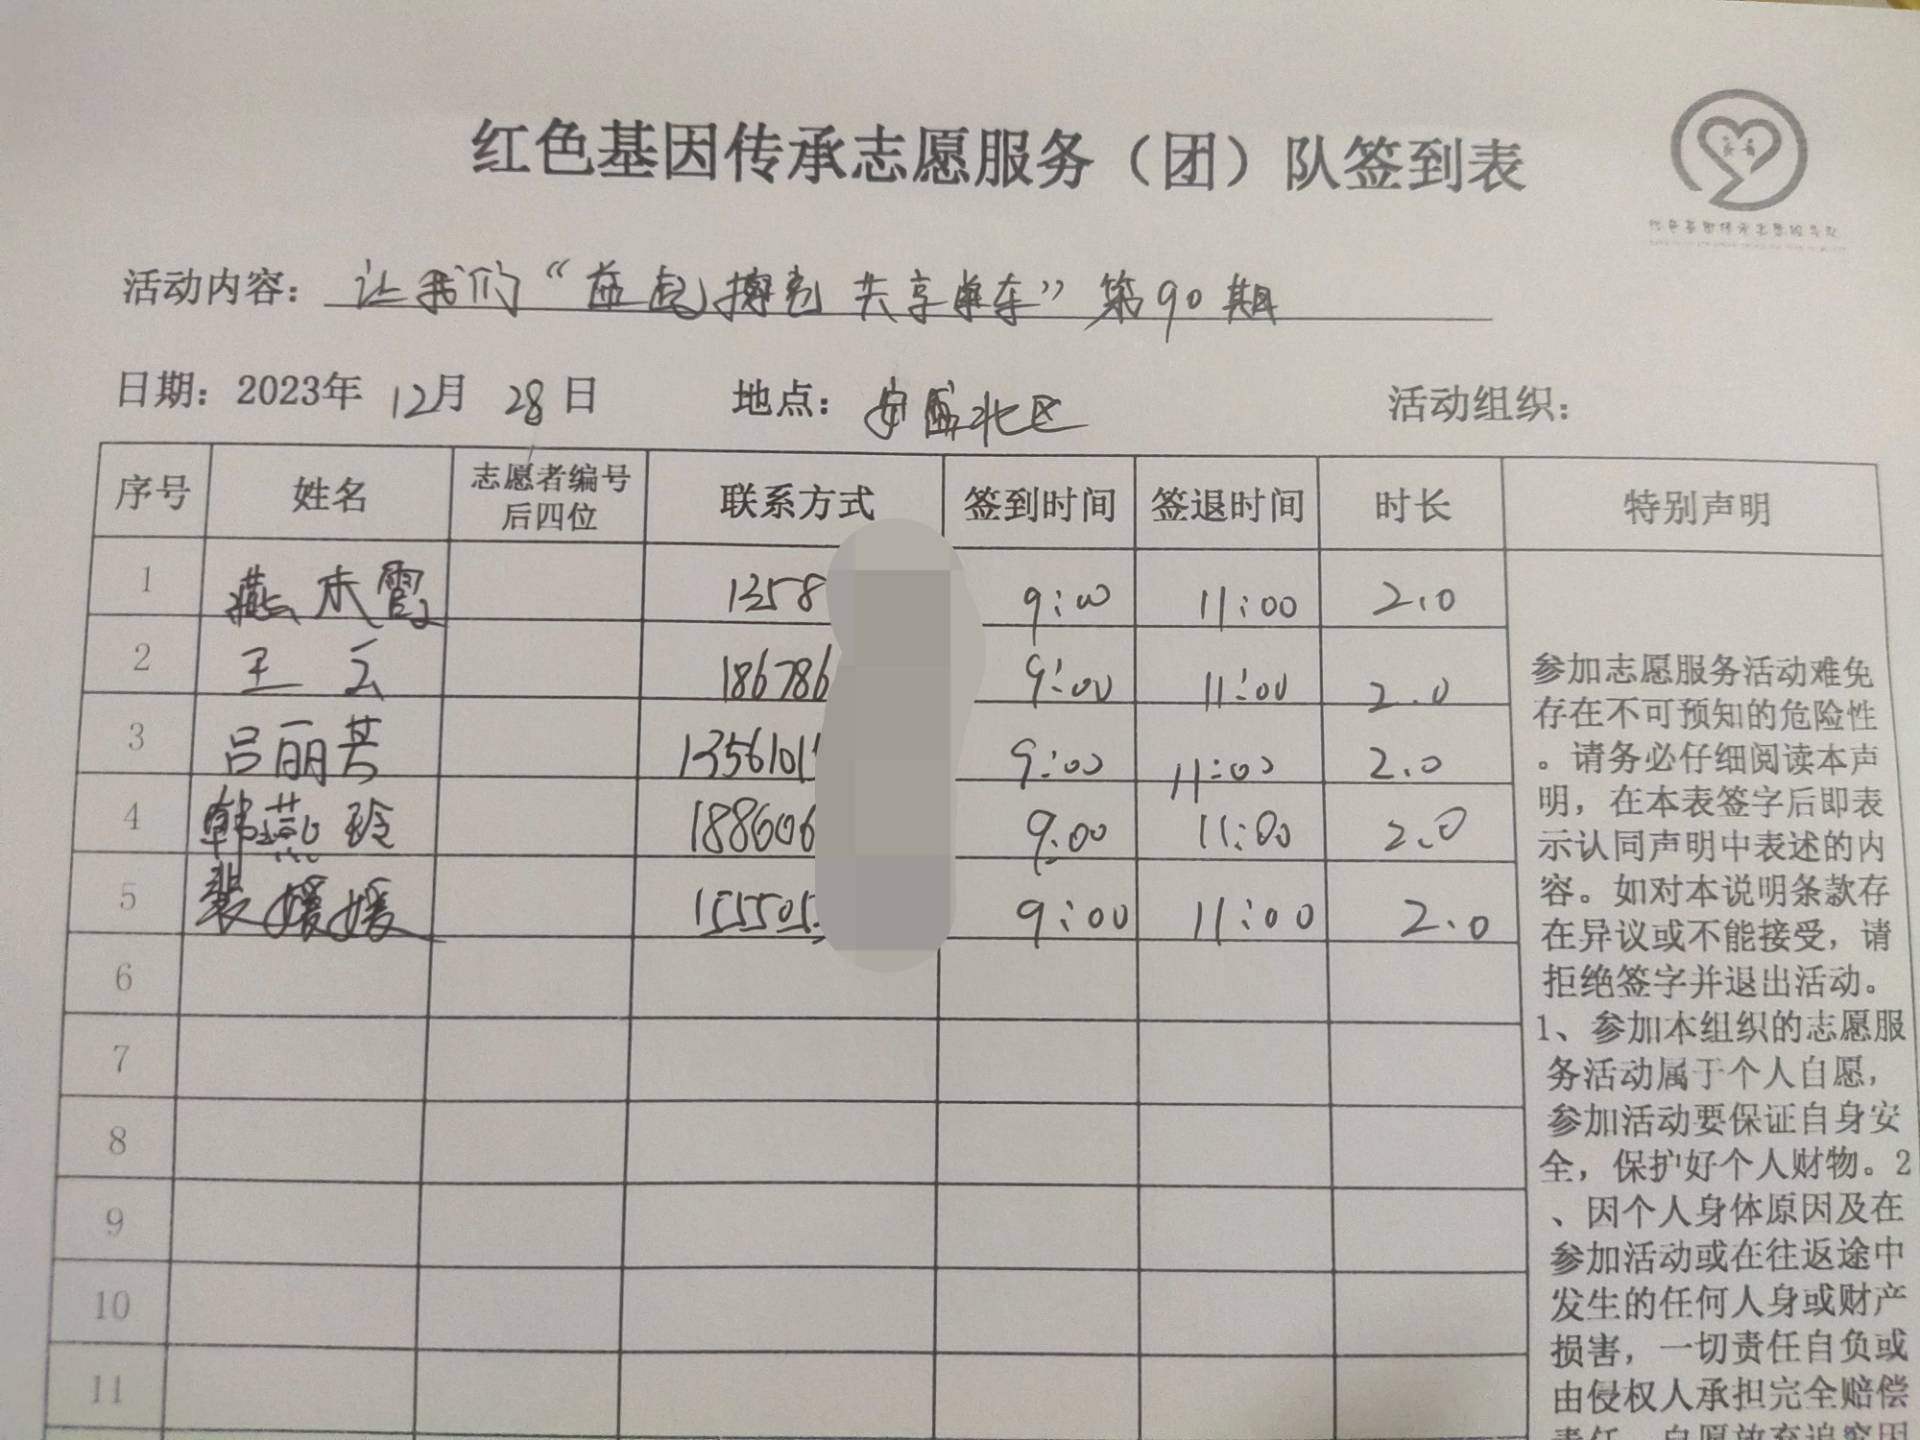 红色基因传承志愿服务（团）队签到表
活动内容：让我们“益起擦亮共享单车”第90期
日期：2023年 12月 28日 地点：北区 活动组织：
序号 姓名 志愿者编号后四位 联系方式 签到时间 签退时间 时长 特别声明
1 燕木霞 1358 9:00 11:00 2.0
2 王云 186786 9:00 11:00 2.0
3 吕丽芸 1356101 9:00 11:00 2.0
4 韩燕玲 188606 9:00 11:00 2.0
5 裴媛媛 155505 9:00 11:00 2.0
6
7
8
9
10
11
参加志愿服务活动难免
存在不可预知的危险性
。请务必仔细阅读本声
明，在本表签字后即表
示认同声明中表述的内
容。如对本说明条款存
在异议或不能接受，请
拒绝签字并退出活动。
1、参加本组织的志愿服
务活动属于个人自愿，
参加活动要保证自身安
全，保护好个人财物。2
、因个人身体原因及在
参加活动或在往返途中
发生的任何人身或财产
损害，一切责任自负或
由侵权人承担完全赔偿